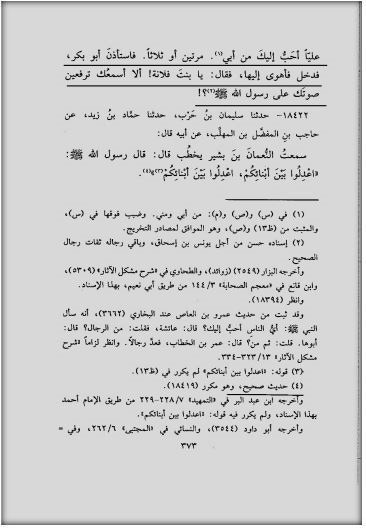 عليّاً أحَبُّ إليكَ من أبي(١). مرتين أو ثلاثاً. فاستأذنَ أبو بكر،
فدخل فأهوى إليها، فقال: يا بنتَ فلانة! ألا أسمعُك ترفعين
صوتَك على رسول الله ﷺ(٢)؟!
١٨٤٢٢- حدثنا سليمان بنُ حَرْب، حدثنا حمَّاد بنُ زيد، عن
حاجب بنِ المفضَّل بن المهلَّب، عن أبيه قال:
سمعتُ النُّعمانَ بنَ بشير يخطُب قال: قال رسول الله ﷺ:
«اعْدِلُوا بَيْنَ أبْنائِكُمْ، اعْدِلُوا بَيْنَ أبْنائِكُمْ(٣)»(٤).
(١) في (س) و(ص) و(م): من أبي ومني. وضبب فوقها في (س)،
والمثبت من (ظ١٣) و(ص)، وهو الموافق لمصادر التخريج.
(٢) إسناده حسن من أجل يونس بن إسحاق، وباقي رجاله ثقات رجال
الصحيح.
وأخرجه البزار (٢٥٤٩) (زوائد)، والطحاوي في «شرح مشكل الآثار» (٥٣٠٩)،
وابن قانع في «معجم الصحابة» ١٤٤/٣ من طريق أبي نعيم، بهذا الإسناد.
وانظر (١٨٣٩٤).
وقد ثبت من حديث عمرو بن العاص عند البخاري (٣٦٦٢)، أنه سأل
النبي ﷺ: أيُّ الناس أحبُّ إليك؟ قال: عائشة، فقلت: من الرجال؟ قال:
أبوها. قلت: ثم من؟ قال: عمر بن الخطاب، فعدَّ رجالاً. وانظر لزاماً «شرح
مشكل الآثار» ٣٢٣/١٣-٣٣٤.
(٣) قوله: «اعدلوا بين أبنائكم» لم يكرر في (ظ١٣).
(٤) حديث صحيح، وهو مكرر (١٨٤١٩).
وأخرجه ابن عبد البر في «التمهيد» ٢٢٨/٧-٢٢٩ من طريق الإمام أحمد
بهذا الإسناد، ولم يكرر فيه قوله: «اعدلوا بين أبنائكم».
وأخرجه أبو داود (٣٥٤٤)، والنسائي في «المجتبى» ٢٦٢/٦، وفي =
٣٧٣